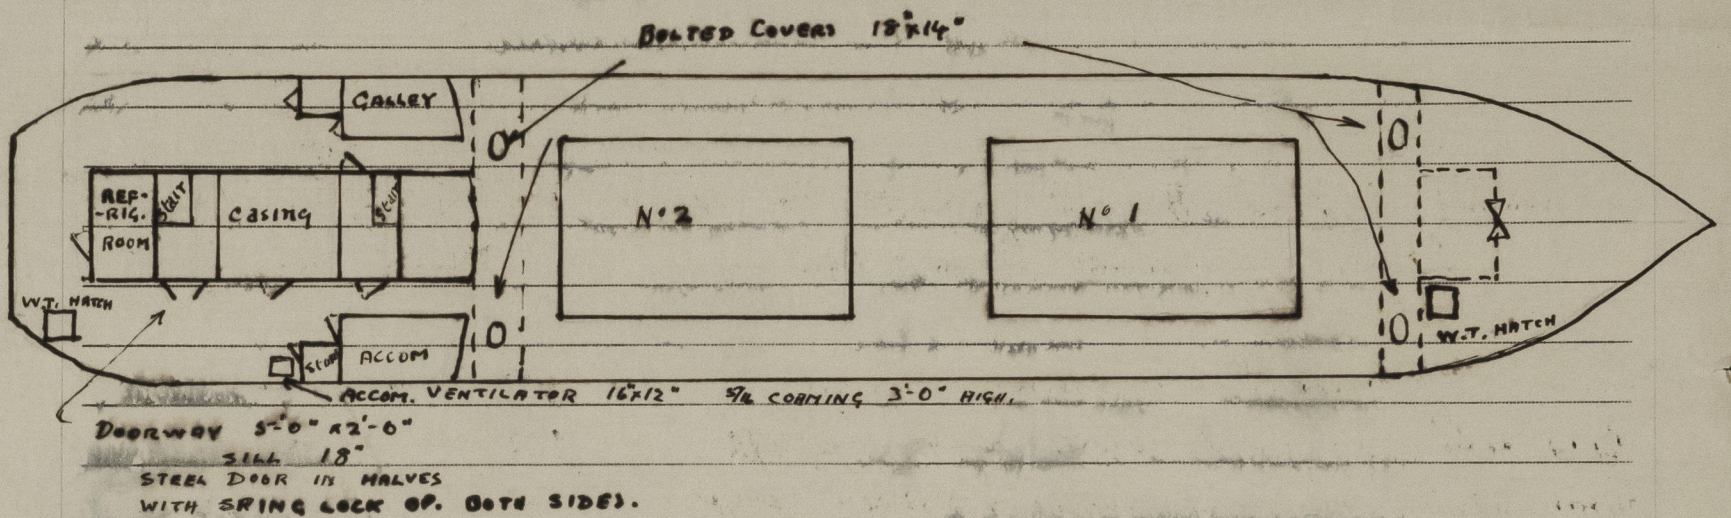 BOLTED COVERS 18"x14"
GALLEY
REF-
-RIG.
ROOM
Stair
Casing
Stair
No 2
No 1
W.T. HATCH
W.T. HATCH
Stor
ACCOM
ACCOM. VENTILATOR 16"x12" COAMING 3'-0" HIGH.
DOORWAY 5'-0" x 2'-0"
SILL 18"
STEEL DOOR IN HALVES
WITH SPRING LOCK OP. BOTH SIDES.